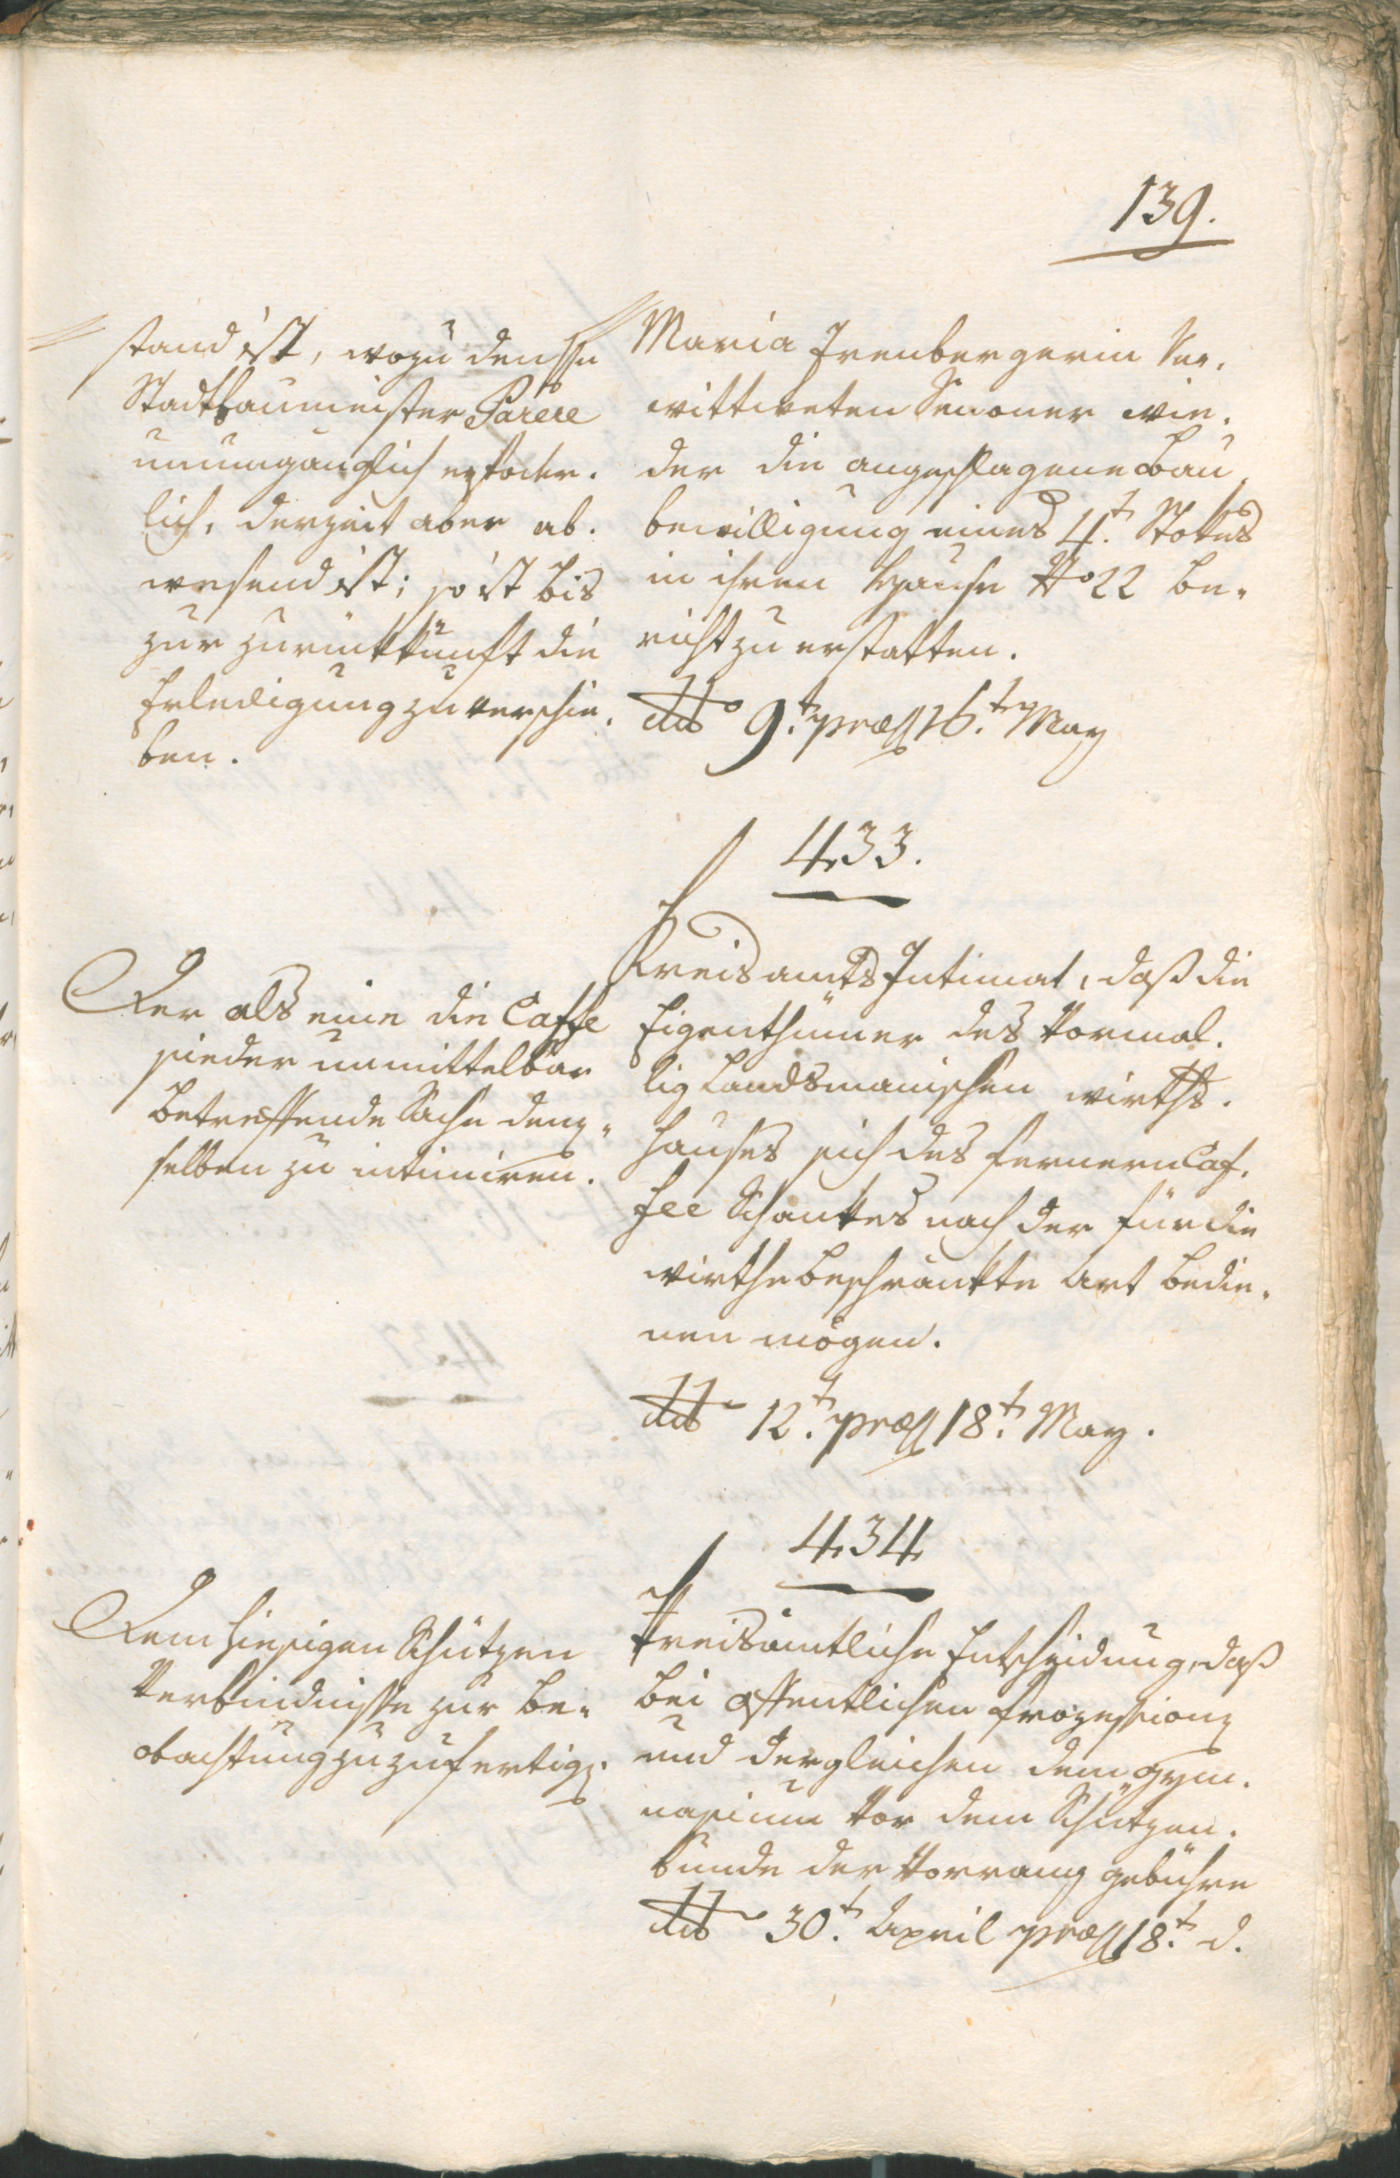 139.
stand ist, wozu dessen
Stadtbaumeister Parere
unumgänglich erforder-
lich, derzeit aber ab-
wesend ist; so ist bis
zur Zurückkunft die
Erledigung zu verschie-
ben.
Maria Irenbergerin Ver-
wittweten Senoner wie-
der die angeschlagene Bau
bewilligung eines 4.t Stokes
in ihrem Hause No 22 be-
richt zu erstatten.
ddo 9.t præs 16.t May
433.
Der als eine die Caffe
sieder unmittelbar
betreffende Sache den-
selben zu intimiren.
Kreisamts Intimat, daß die
Eigenthümer des Vormal-
lig Landsmanischen wirths-
hauses sich des fernern Caf-
fee Schankes nach der für die
wirthe beschränkte Art bedie-
nen mögen.
ddo 12.t præs 18.t May.
434
Dem hiesigen Schützen
Verbindnisse zur Be-
obachtung zuzufertig.
Kreisämtliche Entscheidung, daß
bei öffentlichen Prozession
und dergleichen dem Gym-
nasium Vor dem Schützen-
bunde der Vorrang gebühre
ddo 30.t April præs 18.t d.